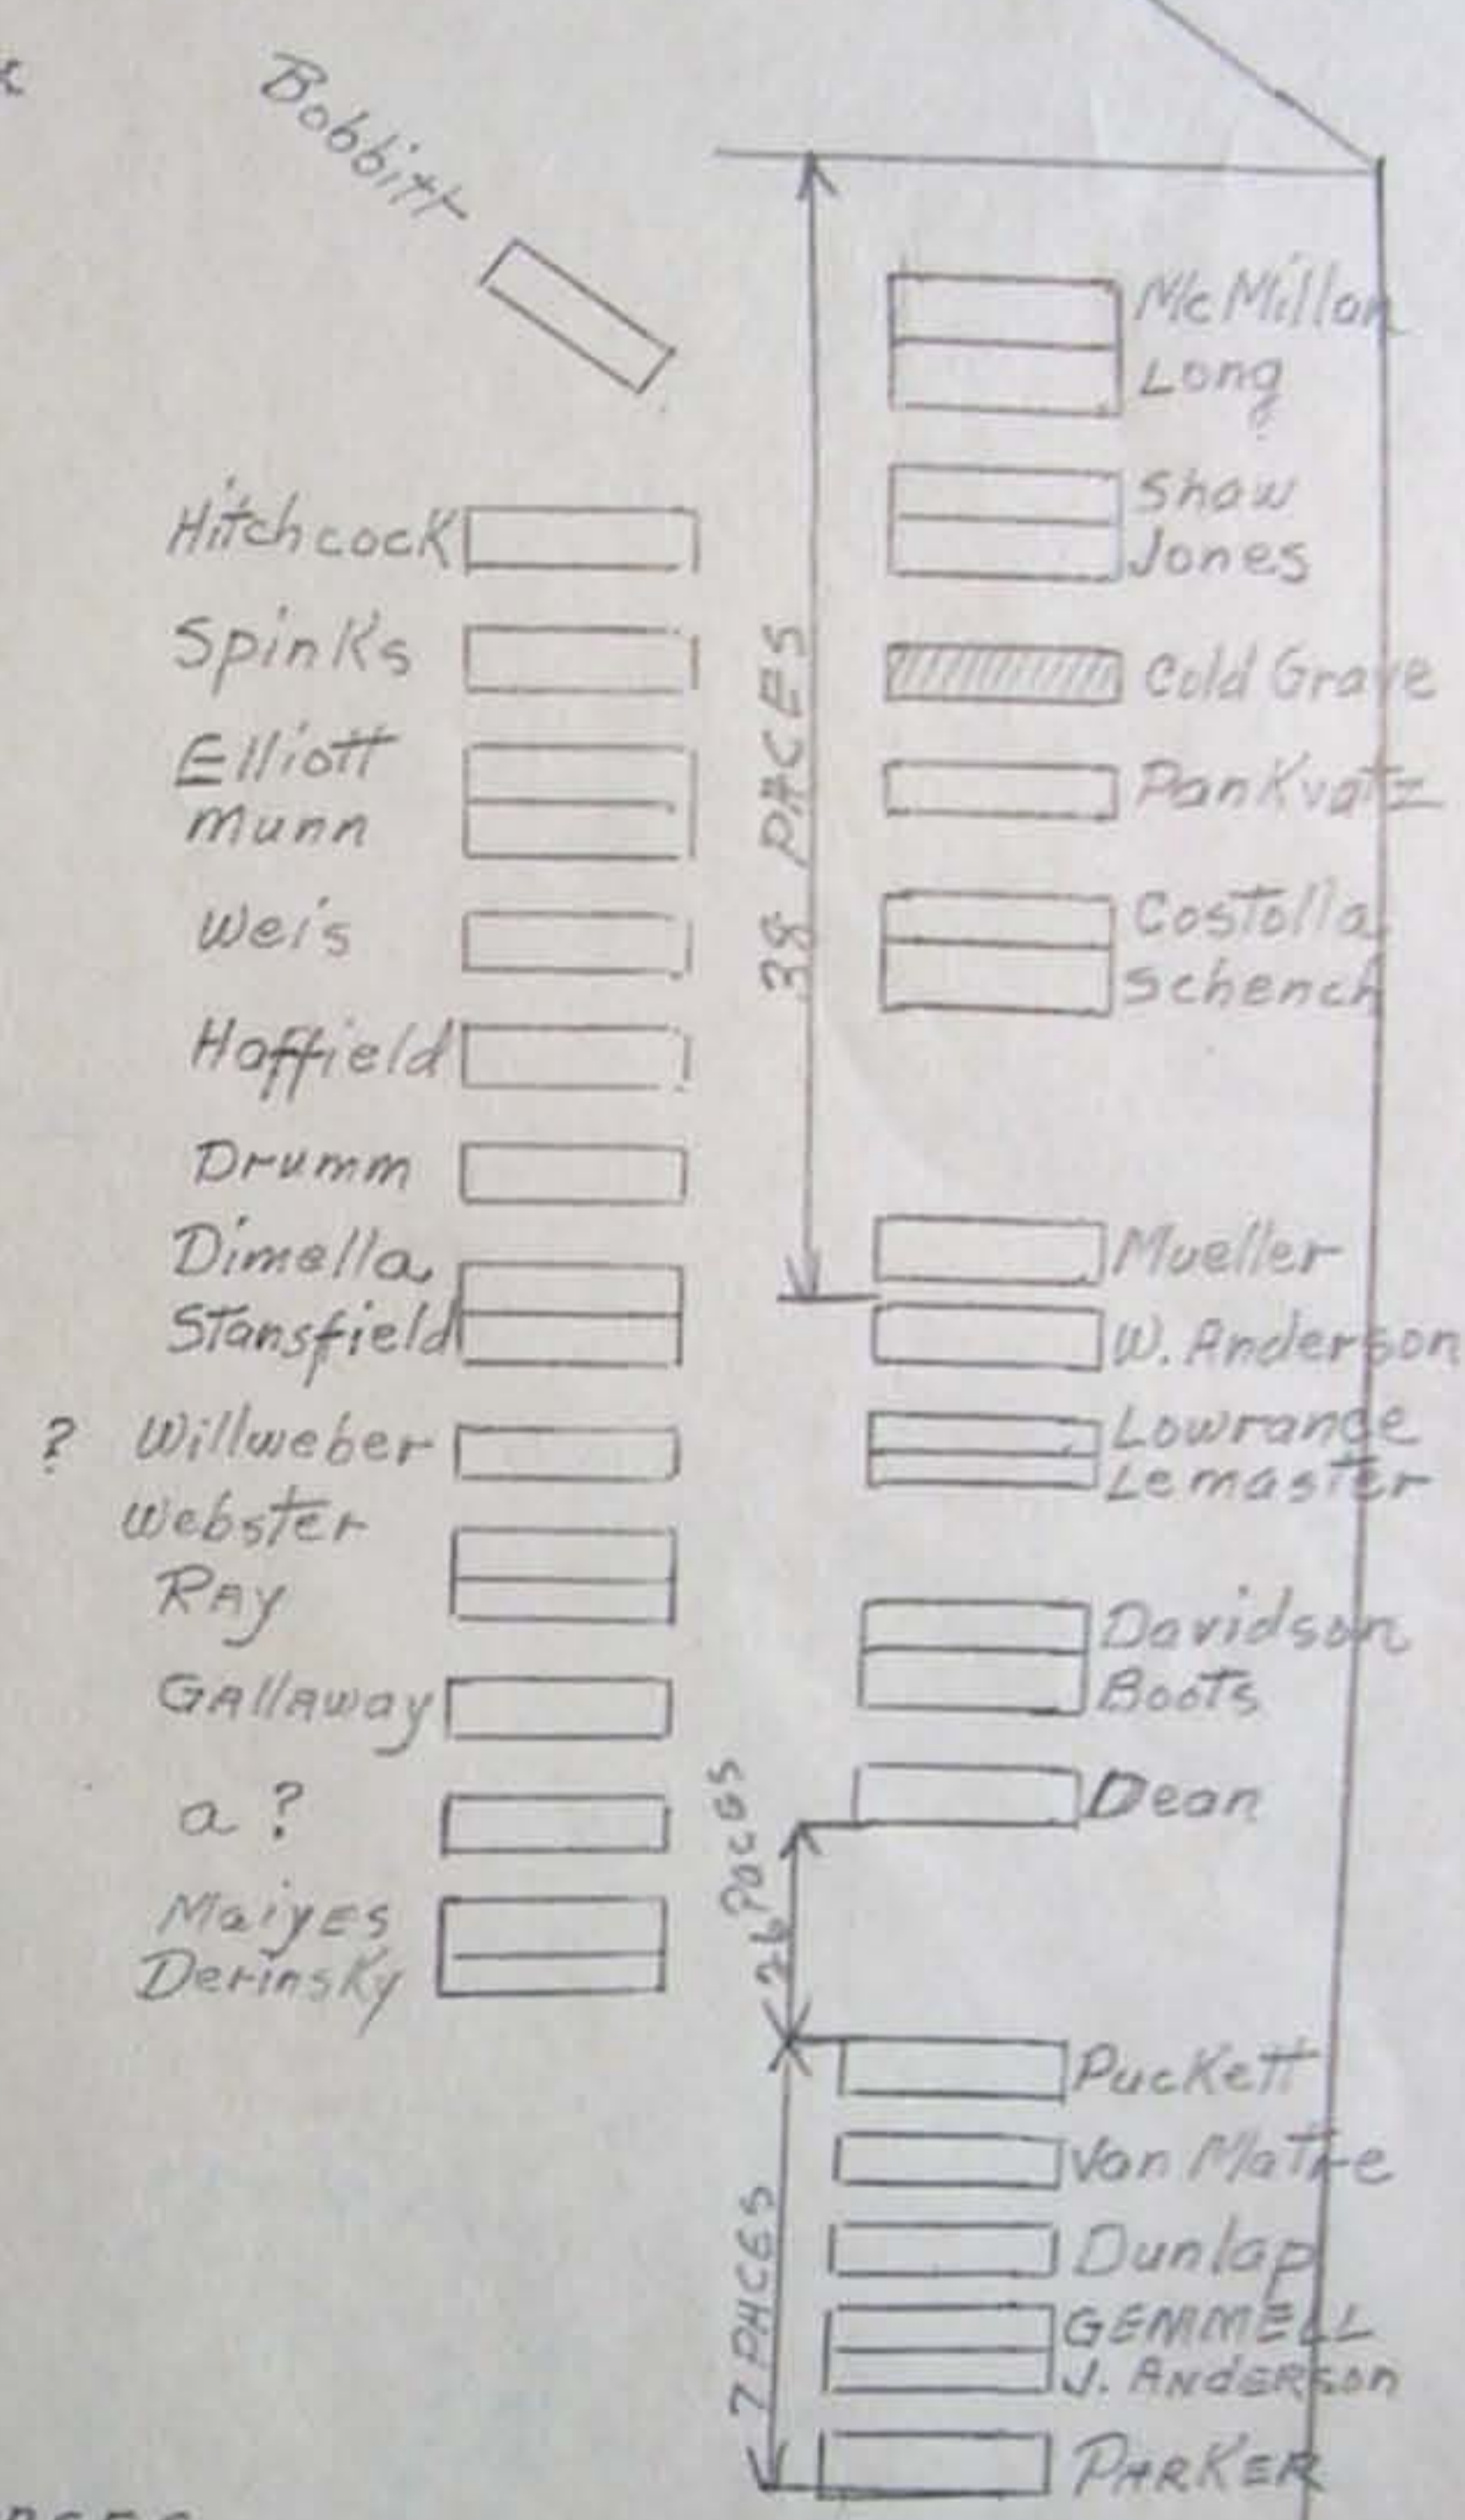 Bobbitt
Hitchcock
Spinks
Elliott
Munn
Weis
Haffield
Drumm
Dimella
Stansfield
? Willweber
Webster
Ray
Gallaway
a ?
Maiyes
Derinsky
38 PACES
26 PACES
7 PACES
McMillan
Long
?
Shaw
Jones
Cold Grave
PanKvatz
Costolla
Schench
Mueller
W. Anderson
Lowrance
Lemaster
Davidson
Boots
Dean
Puckett
Van Matre
Dunlap
GEMMELL
J. ANDERSON
PARKER